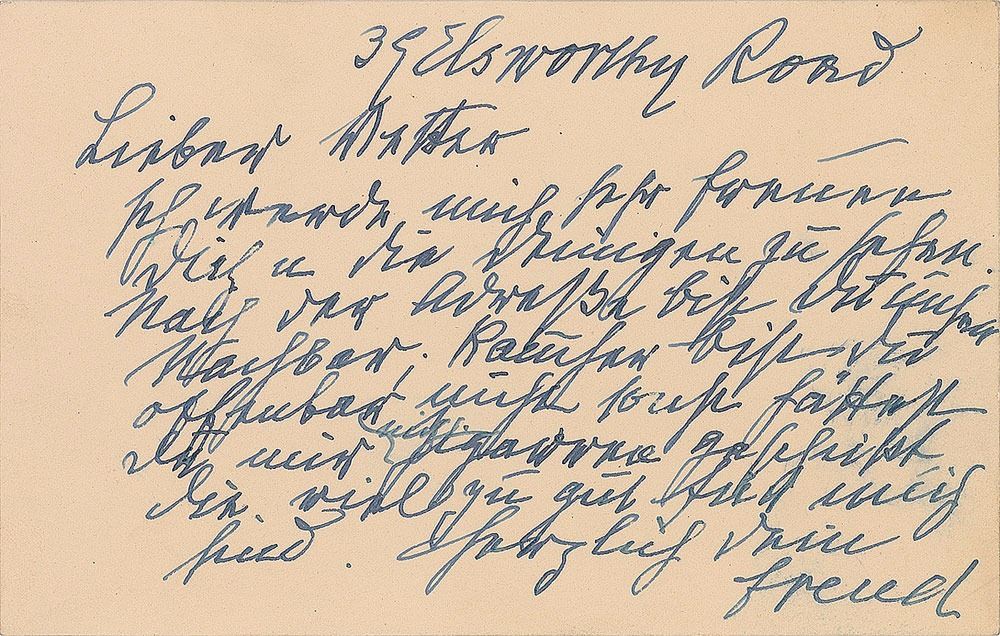 39 Elsworthy Road
Lieber Vetter
Ich werde mich sehr freuen
Dich u die Deinigen zu sehen.
Nach der Adreße bist Du unser
Nachbar. Raucher bist du
offenbar nicht sonst hättest
du mir nicht Zigarren geschickt
die viel zu gut für mich
sind. Herzlich dein
Freud